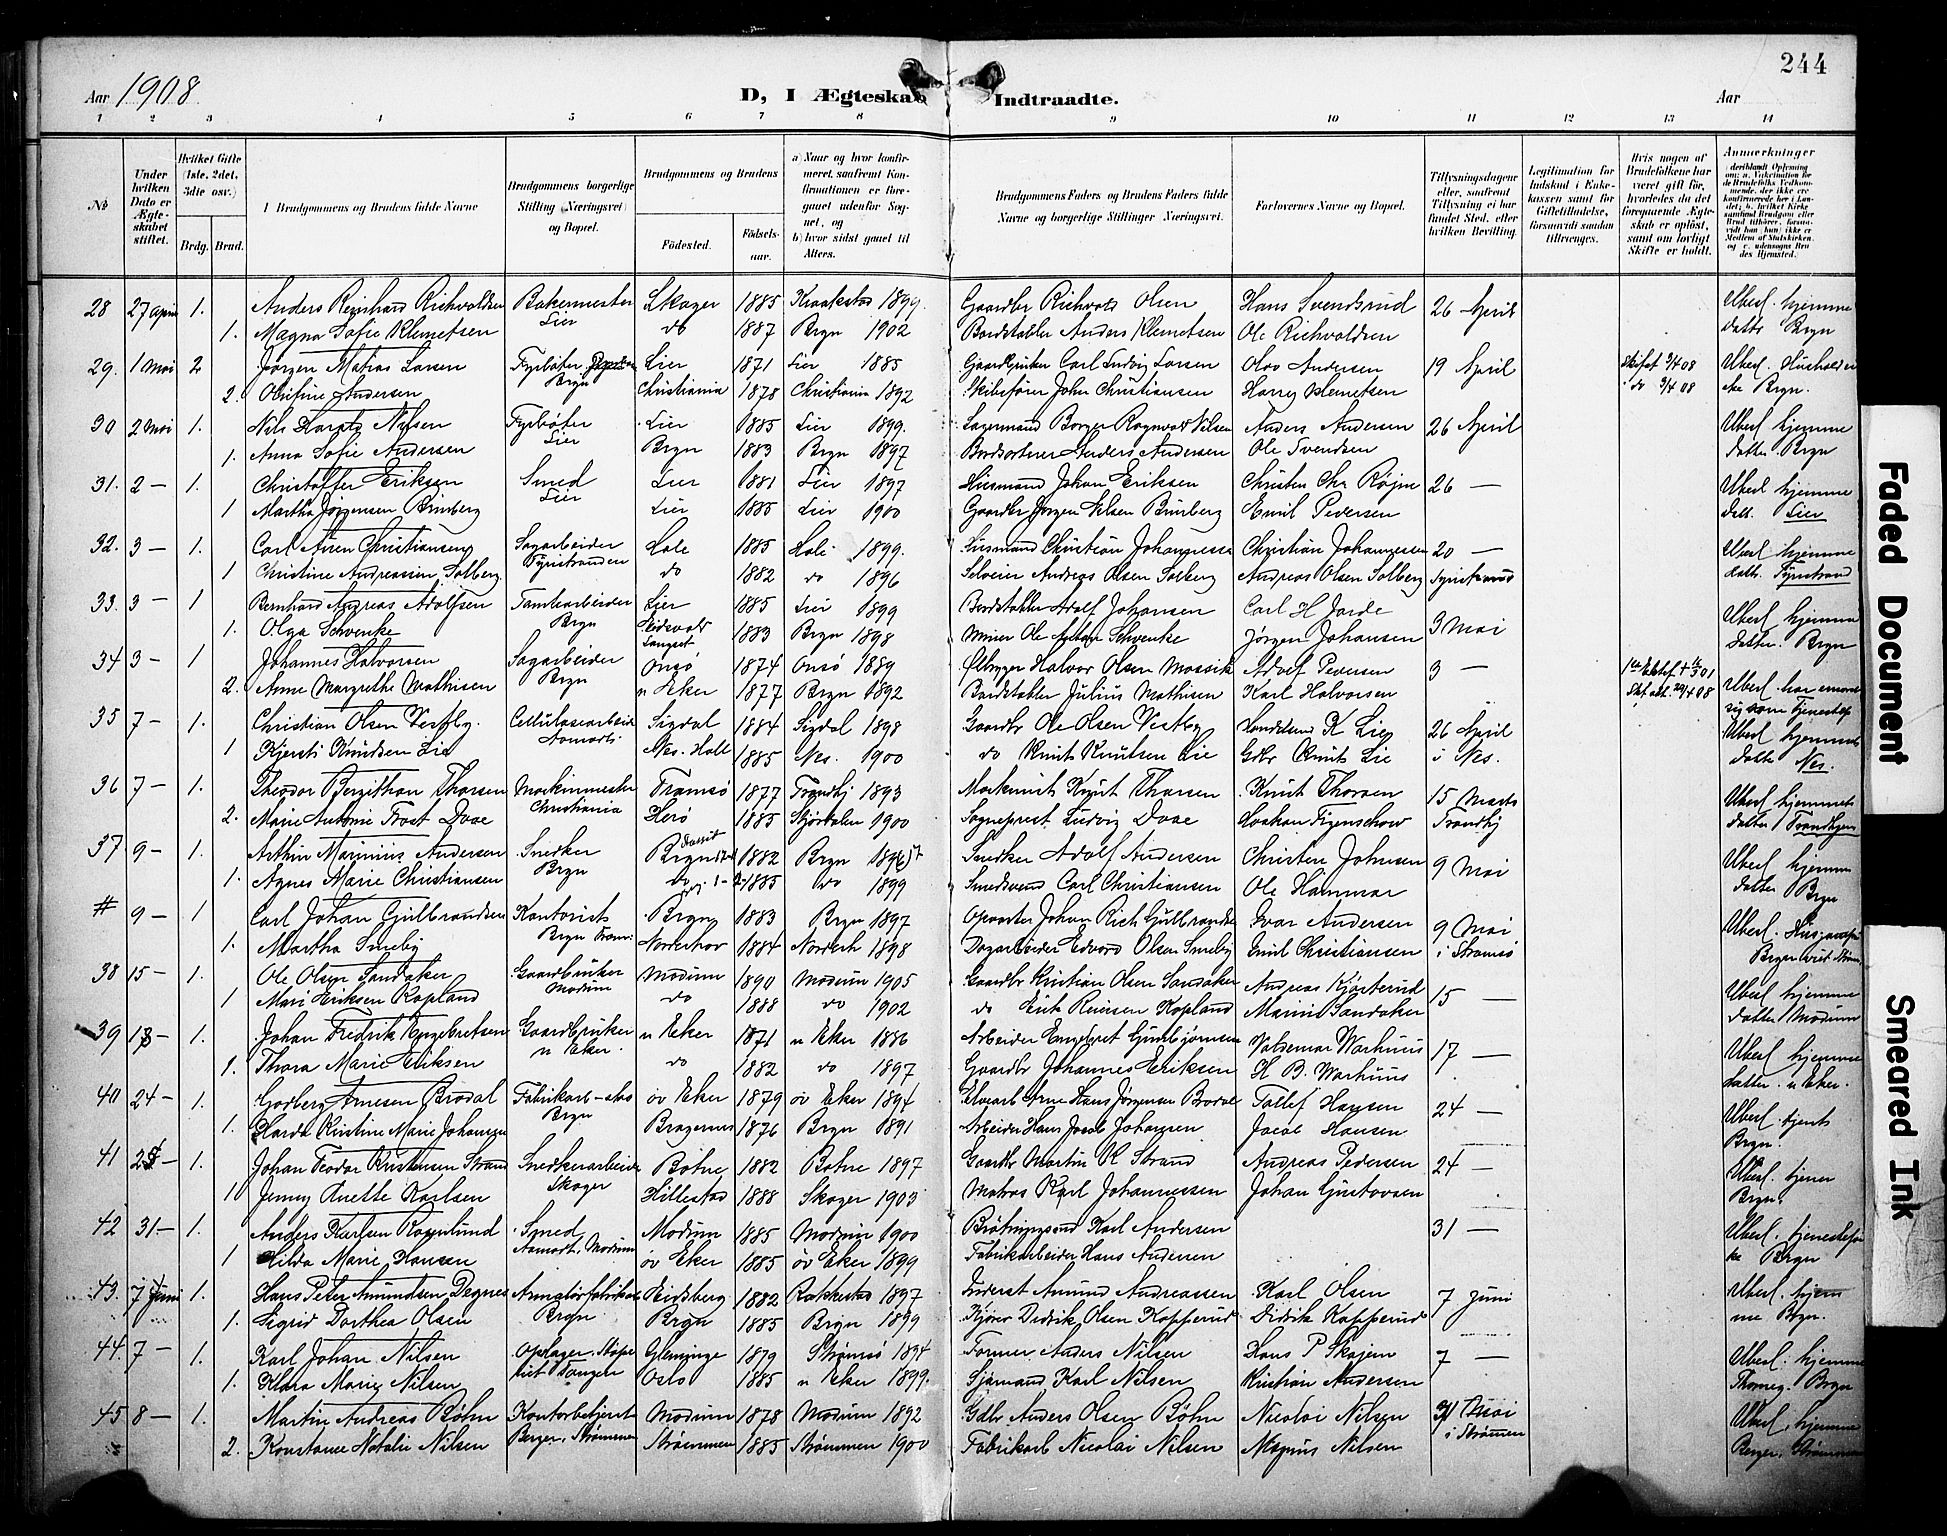 244
Aar 1908.
D, I Ægteskab Indtraadte.
Aar
1 2 3 4 5 6 7 8 9 10 11 12 13 14
No
Under hvilken Dato er Ægteskabet stiftet.
Hvilket Gifte (1ste, 2det, 3die osv.)
Brdg. Brud.
Brudgommens og Brudens fulde Navne
Brudgommens borgerlige Stilling (Næringsvei) og Bopæl.
Brudgommens og Brudens
Fødested.
Fødselsaar.
a) Naar og hvor konfirmeret, saafremt Konfirmationen er foregaaet udenfor Sognet, og
b) hvor sidst gaaet til Alters.
Brudgommens Faders og Brudens Faders fulde Navne og borgerlige Stillinger Næringsvei.
Forlovernes Navne og Bopæl.
Tillysningsdagene eller, saafremt Tillysning ei har fundet Sted, efter hvilken Bevilling.
Legitimation for Indskud i Enkekassen samt for Giftetilladelse, forsaavidt saadan tiltrænges.
Hvis nogen af Brudefolkene har været gift før, hvorledes da det foregaaende Ægteskab er opløst, samt om lovligt Skifte er holdt.
Anmærkninger
28 27 april 1. Anders Reinhard Richvoldsen Bakermester Skoger 1885 Kraakstad 1899. Gaardbr Richvold Olsen Hans Svendsrud 26 April Uberl. hjemme
1. Magna Sofie Klemetsen Lier do 1887 Bryn 1902 Bordstabler Anders Klemetsen Ole Richvoldsen datter Bryn
29. 1 Mai 2 Jørgen Matias Larsen Fyrbøter Lier 1871 Lier 1885 Gaardbruker Carl Ludvig Larsen Olav Andersen 19 April Skiftet 3/4 08 Uberl.
2. Olufine Andersen Bryn Christiania 1878 Christiania 1892 Skibsfører John Christiansen Harry Klemetsen do 3/4 08 Bryn.
30 2 Mai 1. Nils Nilsen Fyrbøter Lier 1885 Lier 1899. Lagermand Borger Ragnvald Nilsen Anders Andersen 26 April Uberl hjemme
1. Anna Sofie Andersen Lier Bryn 1883 Bryn 1897 Bordsorterer Anders Andersen Ole Svendsen datter Bryn
31. 2 — 1. Christoffer Eriksen Smed Lier 1881 Lier 1897 Husmand Johan Eriksen Christen Chr Røjne 26 — Uberl hjemme
1 Martha Jørgensen Bimberg Lier Lier 1885 Lier 1900 Gaardbr Jørgen Nilsen Bimberg Emil Pedersen datt. Lier
32. 3 — 1. Carl Christiansen Sagarbeider Hole 1885 Hole 1899. Husmand Christian Johannessen Christian Johannessen 20 — Uberl hjemme
1 Christine Andreassen Solberg Tyristranden do 1882 do 1896 Selveier Andreas Olsen Solberg Andreas Olsen Solberg Tyristrand datt. Tyristrand
33. 3 — 1 Bernhard Andreas Adolfsen Tomtearbeider Lier 1885 Lier 1899 Bordstabler Adolf Johansen Carl H Jorde 3 Mai Uberl hjemme
1. Olga Schvenke Bryn Eidsvold 1883 Bryn 1898 Minør Ole Anton Schvenke Jørgen Johansen Datter. Bryn
34 3 — 1 Johannes Halvorsen Sagarbeider Onsø 1874 Onsø 1889 Ølbrygger Halvor Olsen Mossik Adolf Pedersen 3 —
2. Anne Margrethe Mathisen Bryn n Eker 1877 Bryn 1892 Bordstabler Julius Mathisen Karl Halvorsen
35 7 — 1. Christian Olsen Vestby. Cellulosearbeid Sigdal 1884 Sigdal 1898 Gaardbr Ole Olsen Vestby Handelsmd K Lie 26 April Uberl hjemme
1 Kjersti Knudsen Lie Aamodt Nes. Hall 1885 Nes. 1900 do Knut Knutsen Lie Gdbr Knut Lie i Nes. datter Nes.
36 7 — 1. Theodor Bergithon Thorsen Maskinmester Tromsø 1877 Trondhj 1893 Maskinist Knut Thorsen Knut Thorsen 15 Marts Uberl hjemmet
2. Marie Antonie Frost Dooe Christiania Herø 1885 Stjørdalen 1900 Sogneprest Ludvig Dooe Haakan Figenschow Trondhj datter Trondhjem
37 9 — 1. Arthur Marinius Andersen Snedker Bryn 1882 Bryn 1896 Snedker Adolf Andersen Christen Johnsen 9 Mai Uberl hjemme
1. Agnes Marie Christiansen Bryn do 1885 do 1899 Smedsvend Carl Christiansen Ole Hammar datter Bryn
# 9 — 1 Carl Johan Gulbrandsen Kontorist Bryn 1883 Bryn 1897 Johan Rich Gulbrandsen Ivar Andersen 9 Mai Uberl.
1. Martha Smeby Bryn Norderhov 1884 Norderh 1898 Dagarbeider Edvard Olsen Smeby Emil Christiansen i Strømsø
38 15 — 1. Ole Olsen Sandaker Gaardbruker Modum 1890 Modum 1905 Gaardbr Kristian Olsen Sandaker Andreas Kjørterud 15 — Uberl hjemme
1 Mari Eriksen Kopland Modum do 1888 do 1902 do Erik Reiersen Kopland Marini Sandaker datter Modum
39 1 — 1. Johan Fredrik Engebretsen Gaardbruker n Eker 1871 n Eker 1886 Arbeider Engebret Gunbjørnsen Valdemar Warhuus 17 — Uberl hjemme
1. Thora Marie Eriksen n Eker. do 1882 do 1897 Gaardbr Johannes Eriksen H B. Warhuus datter. n Eker.
40 24 — 1. Godberg Arnesen Brodal Fabrikarb — øv Eker 1879 øv Eker 1894 Elvearb Arne Hans Jørgensen Brodal Tollef Hansen 24 — Uberl.
1. Harda Kristine Marie Johansen Bryn Bragernes 1876 Bryn 1891 Arbeider Hans Jacob Johansen Jacob Hansen Bryn.
41 2 — 1. Johan Teodor Kristensen Strand Snedkerarbeider Botne 1882 Botne 1897 Gaardbr Martin Strand Andreas Pedersen 24 — Uberl. hjemme
1 Jenny Anette Karlsen Skoger Hillestad 1888 Skoger 1903 Matros Karl Johannessen Johan Gustavsen Bryn.
42 31 — 1. Anders Karlsen Rosenlund Smed Modum 1885 Modum 1900 Karl Andersen 31 — Uberl.
1 Hilda Marie Hansen Aamodt, Modum øv Eker 1885 øv Eker 1899 Fabrikarbeider Hans Andersen Bryn
43. 7 Juni 1. Hans Peter Amundsen Degnes Eidsberg 1882 Rakkestad 1897 Inderst Amund Andreassen Karl Olsen 7 Juni Uberl. hjem
1. Sigrid Dorthea Olsen Bryn Bryn 1885 Bryn 1899 Kjører Didrik Olsen Kopperud Didrik Kopperud me Bryn.
44. 7 — 1. Karl Johan Nilsen Glemminge 1879 Strømsø 1894 Former Anders Nilsen Hans P Skojem 7 — Uberl. hjemme
1. Klara Marie Nilsen Tangen Oslo 1885 n Eker 1899. Sjømand Karl Nilsen Kristian Andersen Bryn
45 8 — 1. Martin Andreas Bøhn Kontorbetjent Modum 1878 Modum 1892 Gdbr Anders Olsen Bøhn Nicolai Nilsen 31 Mai Uberl. hjemme
2. Konstanse Natalie Nilsen Berger, Strømmen Strømmen 1885 Strømmen 1900 Fabrikarb Nicolai Nilsen Magnus Nilsen i Strømmen Berger, Strømmen
Faded Document
Smeared Ink